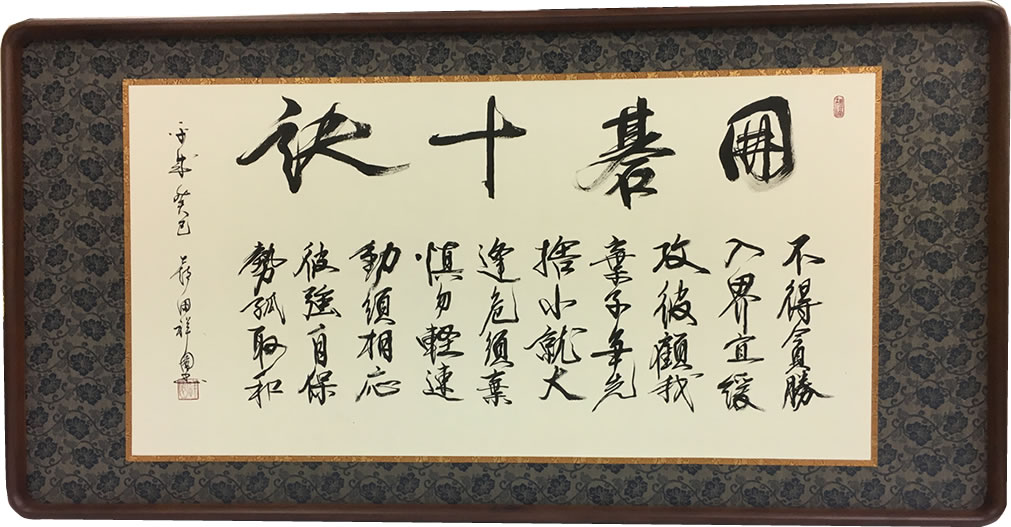 囲碁十訣
不得貪勝
入界宜緩
攻彼顧我
棄子争先
捨小就大
逢危須棄
慎勿軽速
動須相応
彼強自保
勢孤取和
平成癸巳